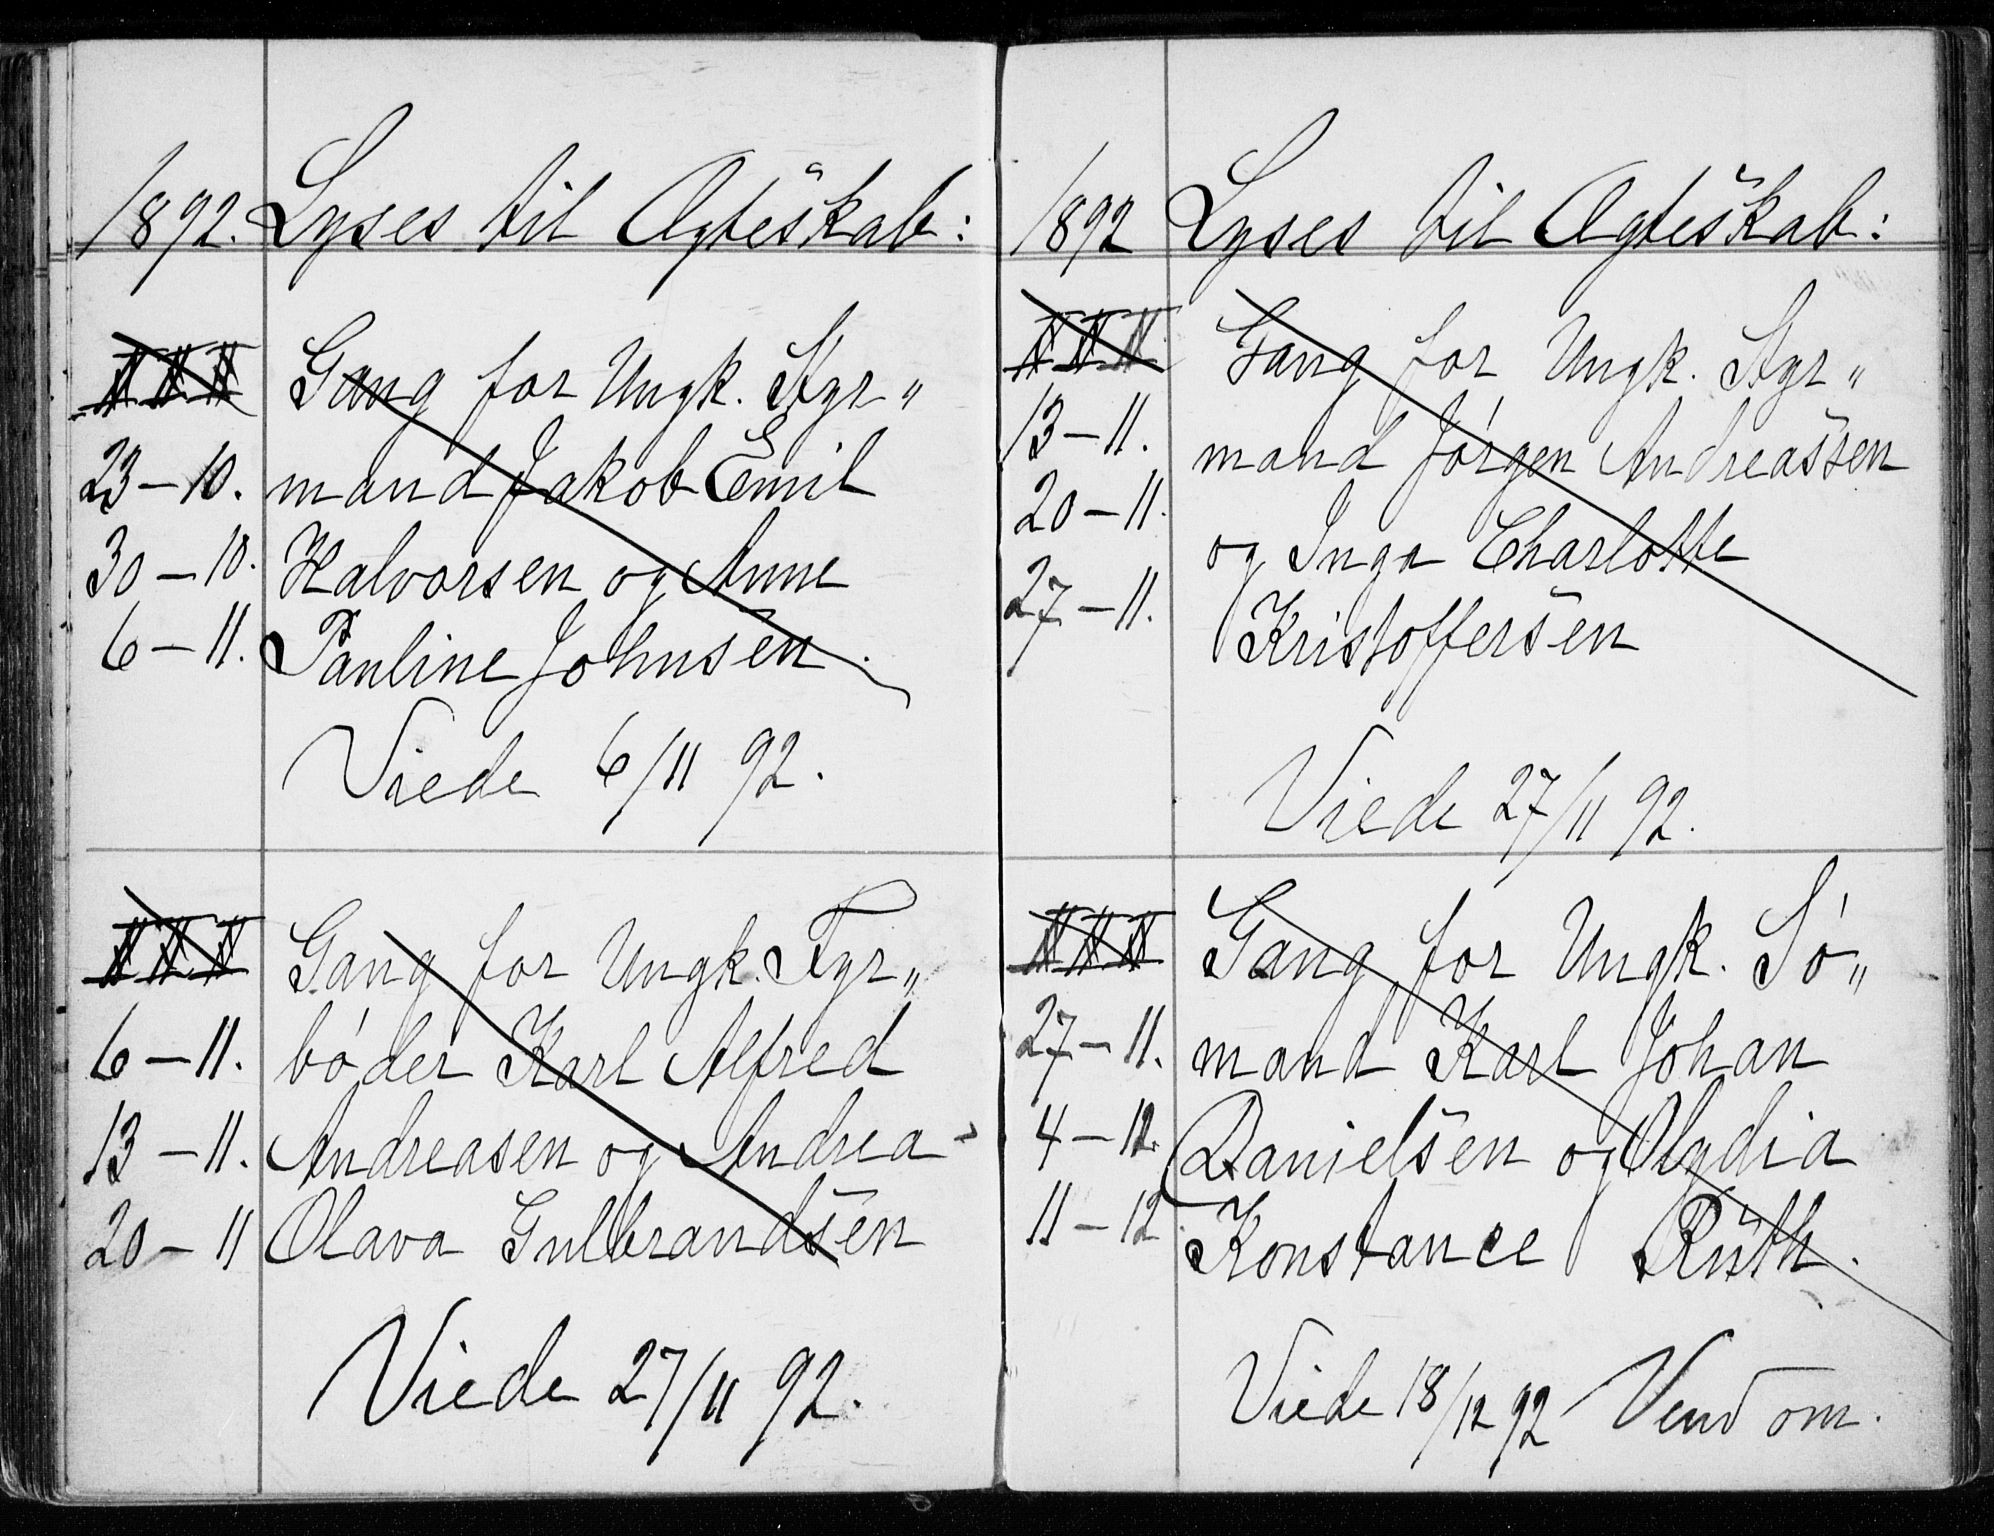 1892. Lyses til Ægteskab:
I I I Gang for Ungk. Styr„
23 – 10. mand Jakob Emil
30 – 10. Halvorsen og Anne
6 – 11. Pauline Johnsen.
Viede 6/11 92.
I I I Gang for Ungk. Fyr„
6 – 11. bøder Karl Alfred
13 – 11. Andreasen og Andrea
20 – 11 Olava Gulbrandsen
Viede 27/11 92.
1892 Lyses til Ægteskab:
I I I Gang for Ungk. Styr„
13 – 11. mand Jórgen Andreassen
20 – 11. og Inga Charlotte
27 – 11. Kristoffersen
Viede 27/11 92.
I I I Gang for Ungk. Só„
27 – 11. mand Karl Johan
4 – 12. Danielsen og Olydia
11 – 12. Konstance Rüth.
Viede 18/12 92 Vend om.